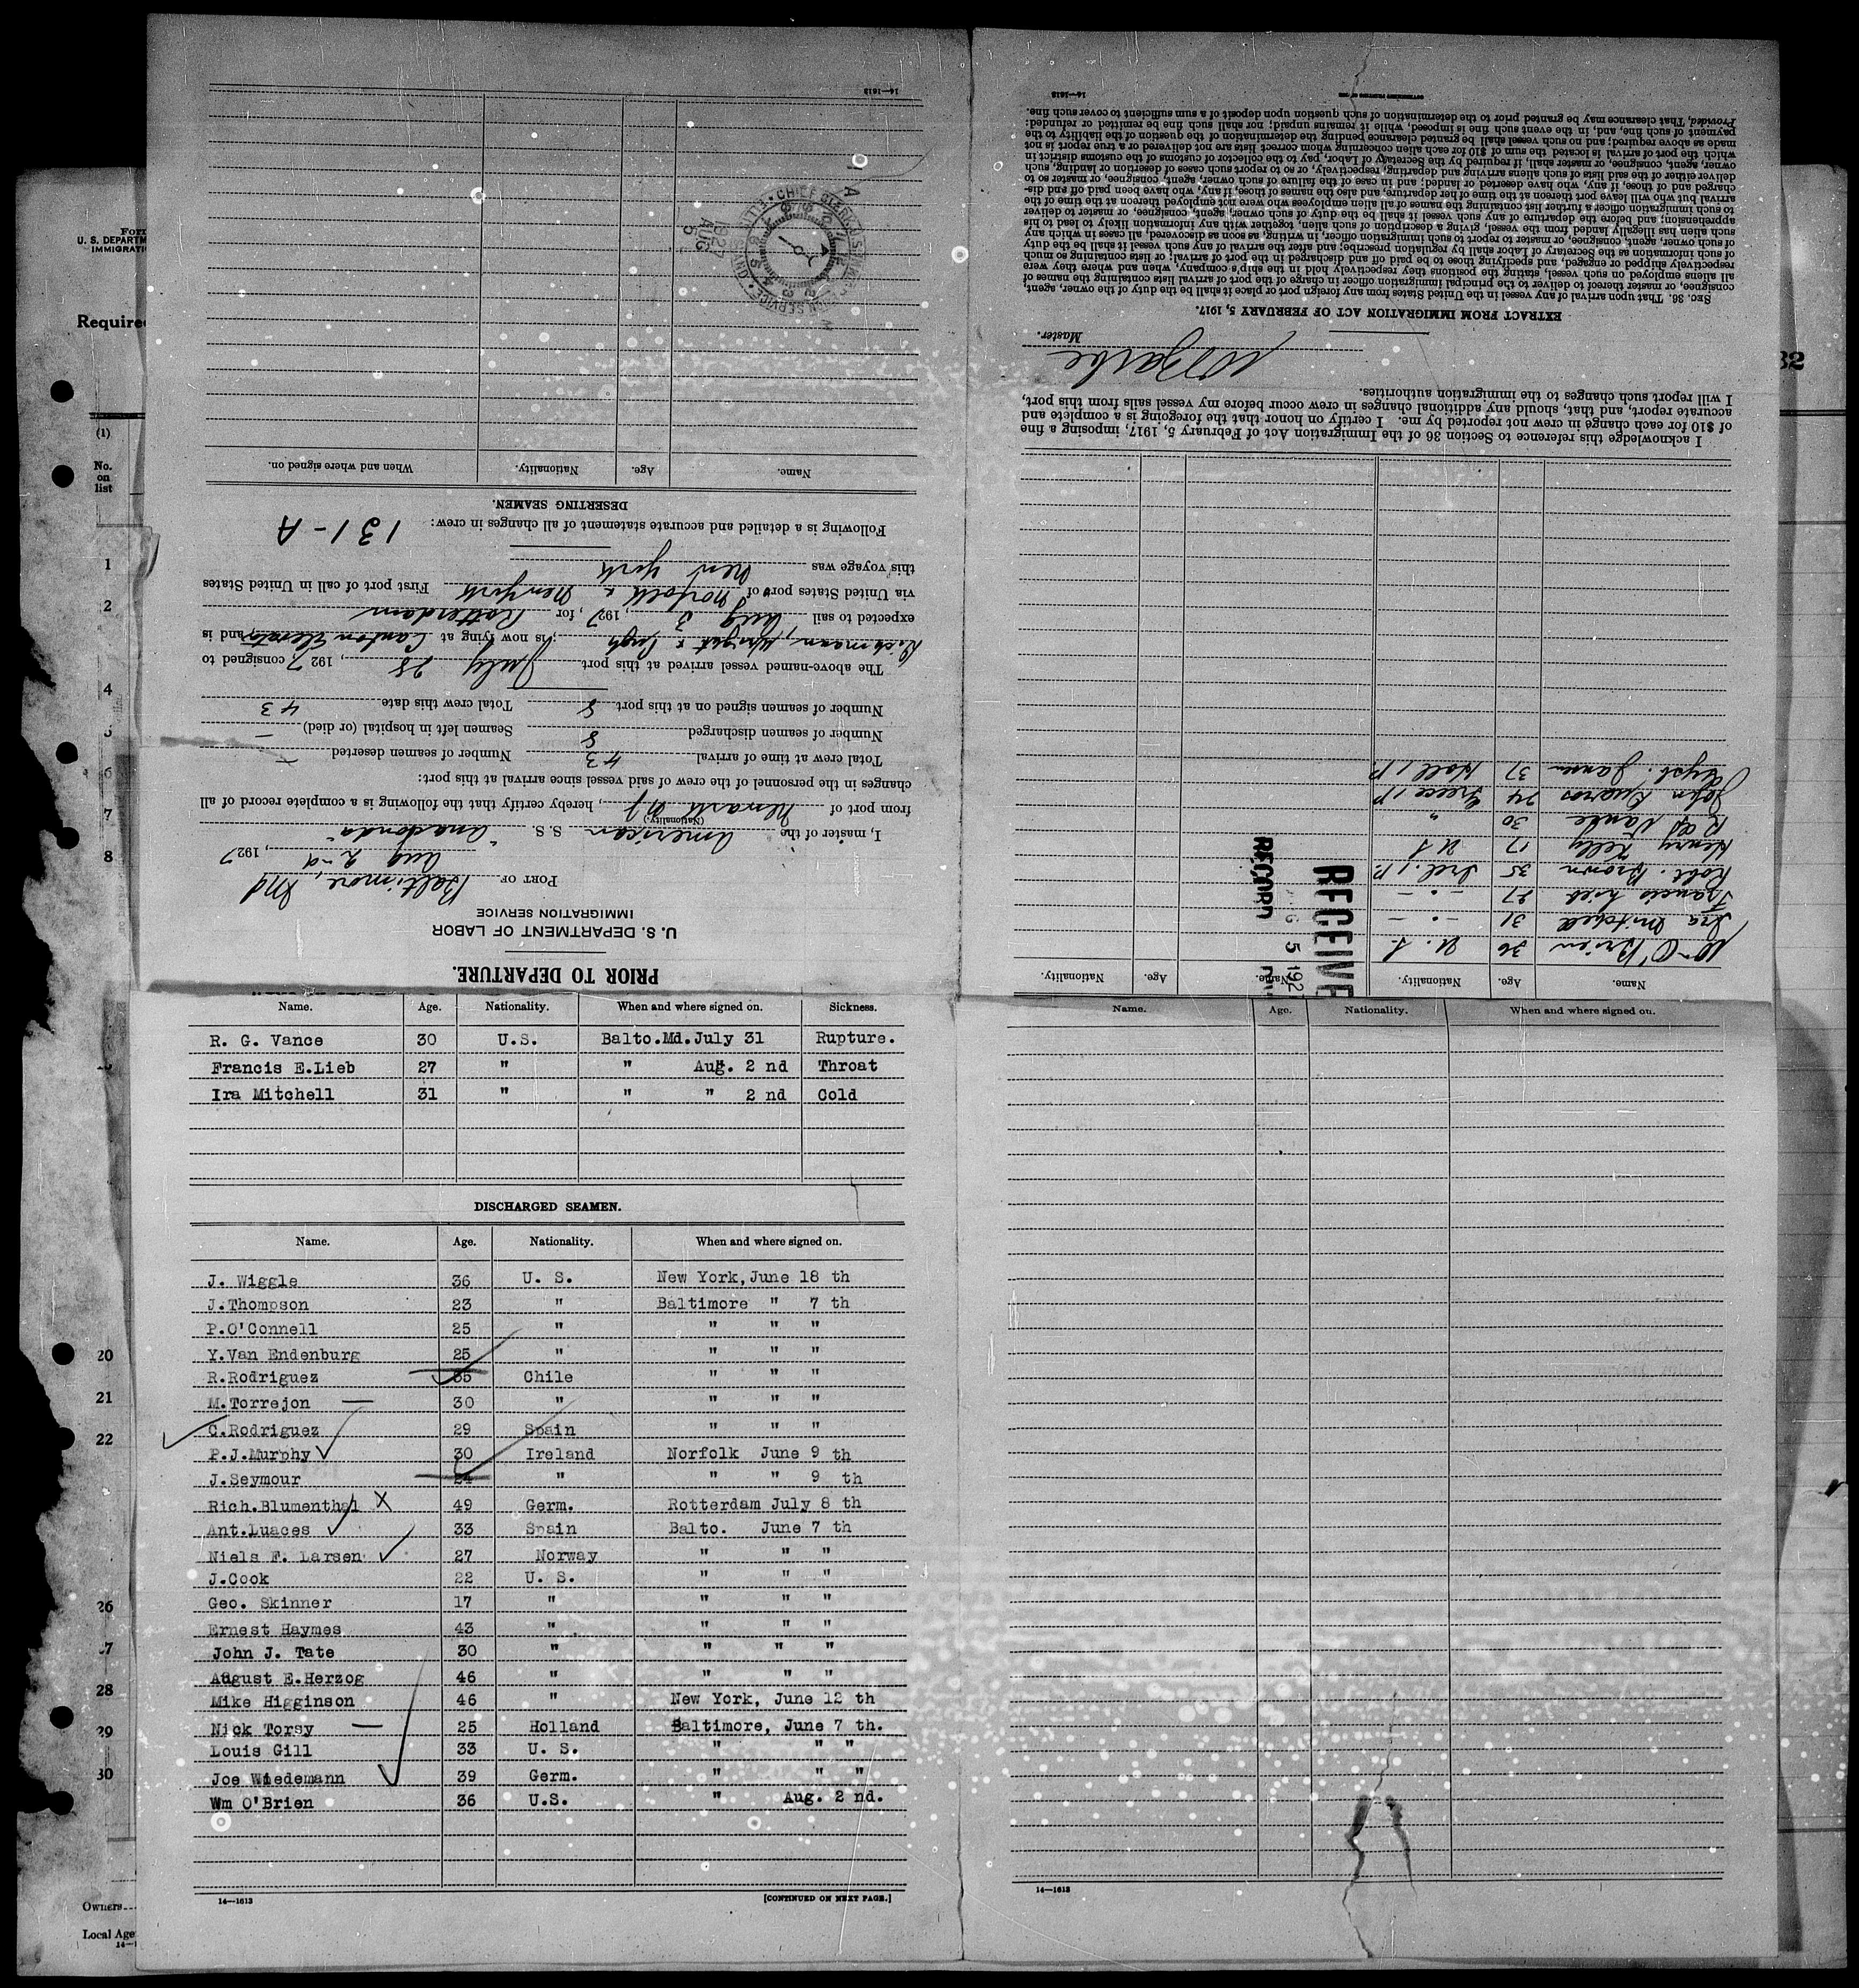 FORM
U. S. DEPARTM
IMMIGRATI
Require
(1)
No.
on
list
1
2
4
5
6
7
8
20
21
22
26
27
28
29
30
Owners
Local Age
14—1
32
PRIOR TO DEPARTURE.
U. S. DEPARTMENT OF LABOR
IMMIGRATION SERVICE
PORT OF Baltimore, Md
Aug 2nd, 1927
I, master of the American S. S. "Anaconda"
(Nationality.)
from port of Newark NJ, hereby certify that the following is a complete record of all
changes in the personnel of the crew of said vessel since arrival at this port:
Total crew at time of arrival 43 Number of seamen deserted —
Number of seamen discharged 8 Seamen left in hospital (or died) —
Number of seamen signed on at this port 8 Total crew this date 43
The above-named vessel arrived at this port July 28, 1927, consigned to
Wright & Pugh; is now lying at Canton and is
expected to sail Aug 3, 1927, for Rotterdam
via United States port of Norfolk & New York First port of call in United States
this voyage was New York
Following is a detailed and accurate statement of all changes in crew: 131-A
DESERTING SEAMEN.
Name. Age. Nationality. When and where signed on.
CHIEF
1927
AUG 5
14—1613
Name. Age. Nationality. Name. Age. Nationality.
Wm O'Brien 36 U. S.
Ira Mitchell 31 - " -
Francis Lieb 27 - " -
Robt. Brown 35 Irel. 1 P.
Henry Kelly 17 U S
Vance 30 "
John 24 Greece 1 P
Jansen 37 Holl 1 P.
RECEIVE
5 192
RECORD
I acknowledge this reference to Section 36 of the Immigration Act of February 5, 1917, imposing a fine
of $10 for each change in crew not reported by me. I certify on honor that the foregoing is a complete and
accurate report, and that, should any additional changes in crew occur before my vessel sails from this port,
I will report such changes to the immigration authorities.
Master.
EXTRACT FROM IMMIGRATION ACT OF FEBRUARY 5, 1917.
SEC. 36. That upon arrival of any vessel in the United States from any foreign port or place it shall be the duty of the owner, agent,
consignee, or master thereof to deliver to the principal immigration officer in charge of the port of arrival lists containing the names of
all aliens employed on such vessel, stating the positions they respectively hold in the ship's company, when and where they were
respectively shipped or engaged, and specifying those to be paid off and discharged in the port of arrival; or lists containing so much
of such information as the Secretary of Labor shall by regulation prescribe; and after the arrival of any such vessel it shall be the duty
of such owner, agent, consignee, or master to report to such immigration officer, in writing, as soon as discovered, all cases in which any
such alien has illegally landed from the vessel, giving a description of such alien, together with any information likely to lead to his
apprehension; and before the departure of any such vessel it shall be the duty of such owner, agent, consignee, or master to deliver
to such immigration officer a further list containing the names of all alien employees who were not employed thereon at the time of the
arrival but who will leave port thereon at the time of her departure, and also the names of those, if any, who have been paid off and dis-
charged and of those, if any, who have deserted or landed; and in case of the failure of such owner, agent, consignee, or master so to
deliver either of the said lists of such aliens arriving and departing, respectively, or so to report such cases of desertion or landing, such
owner, agent, consignee, or master shall, if required by the Secretary of Labor, pay to the collector of customs of the customs district in
which the port of arrival is located, the sum of $10 for each alien concerning whom correct lists are not delivered or a true report is not
made as above required; and no such vessel shall be granted clearance pending the determination of the question of the liability to the
payment of such fine, and, in the event such fine is imposed, while it remains unpaid; nor shall such fine be remitted or refunded:
Provided, That clearance may be granted prior to the determination of such question upon deposits of a sum sufficient to cover such fine.
GOVERNMENT PRINTING OFFICE
14—1613
Name. Age. Nationality. When and where signed on. Sickness.
R. G. Vance 30 U.S. Balto.Md.July 31 Rupture.
Francis E.Lieb 27 " " Aug. 2 nd Throat
Ira Mitchell 31 " " " 2 nd Cold
DISCHARGED SEAMEN.
Name. Age. Nationality. When and where signed on.
J. Wiggle 36 U. S. New York,June 18 th
J.Thompson 23 " Baltimore " 7 th
P.O'Connell 25 " " " "
Y.Van Endenburg 25 " " " "
R.Rodriguez 35 Chile " " "
M.Torrejon — 30 " " " "
C.Rodriguez 29 Spain " " "
P.J.Murphy 30 Ireland Norfolk June 9 th
J.Seymour 24 " " " 9 th
Rich.Blumenthal X 49 Germ. Rotterdam July 8 th
Ant.Luaces 33 Spain Balto. June 7 th
Niels F. Larsen 27 Norway " " "
J.Cook 22 U. S. " " "
Geo. Skinner 17 " " " "
Ernest Haymes 43 " " " "
John J. Tate 30 " " " "
August E.Herzog 46 " " " "
Mike Higginson 46 " New York, June 12 th
Nick Torsy — 25 Holland Baltimore, June 7 th.
Louis Gill 33 U. S. " " "
Joe Wiedemann 39 Germ. " " "
Wm O'Brien 36 U.S. " Aug. 2 nd.
14—1613 [CONTINUED ON NEXT PAGE.]
Name. Age. Nationality. When and where signed on.
14—1613